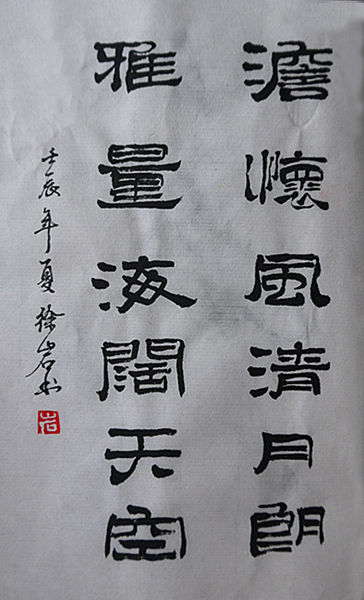 澹懷風清月朗
雅量海闊天空
壬辰年夏徐岩书
岩